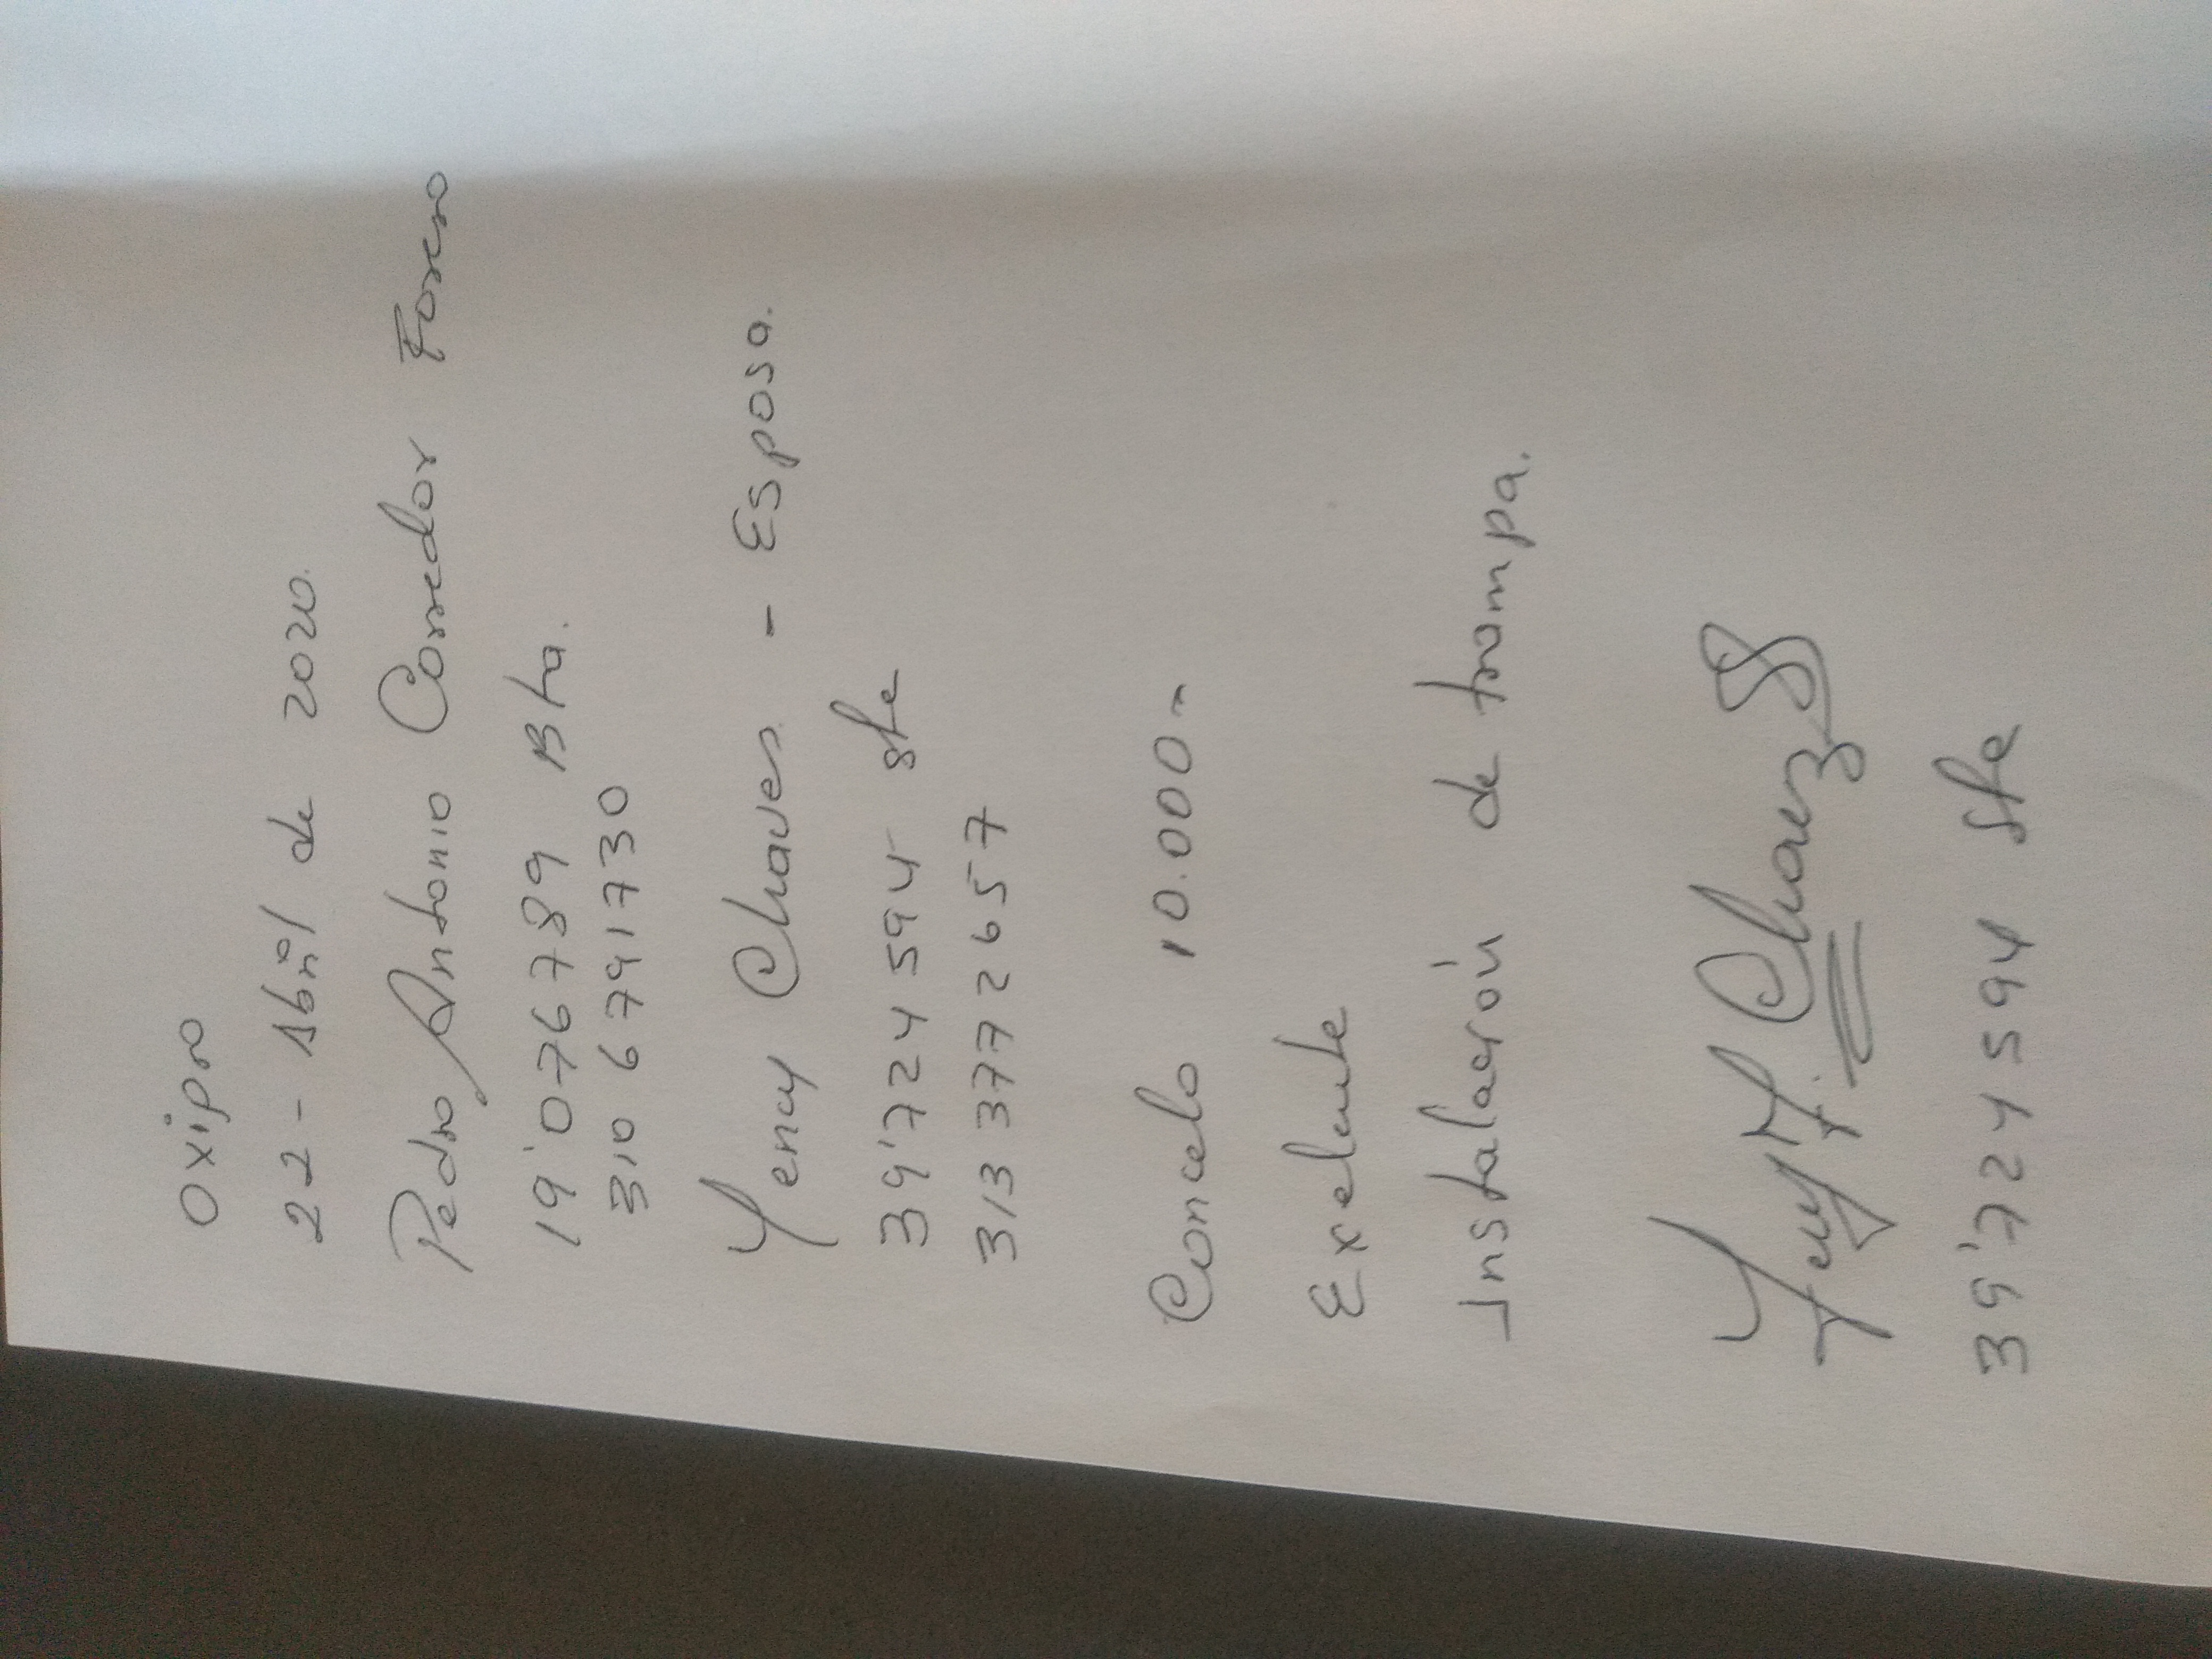 Oxipro
22 - Abril de 2020.
Pedro Antonio Corredor Forero
19'076789 Bta.
310 6791730
Yency Chaves - Esposa.
39'724594 Sfe
313 3772657
Cancelo 10.000-
Exelente
Instalación de trampa.
Yency Chavez
39'724594 Sfe